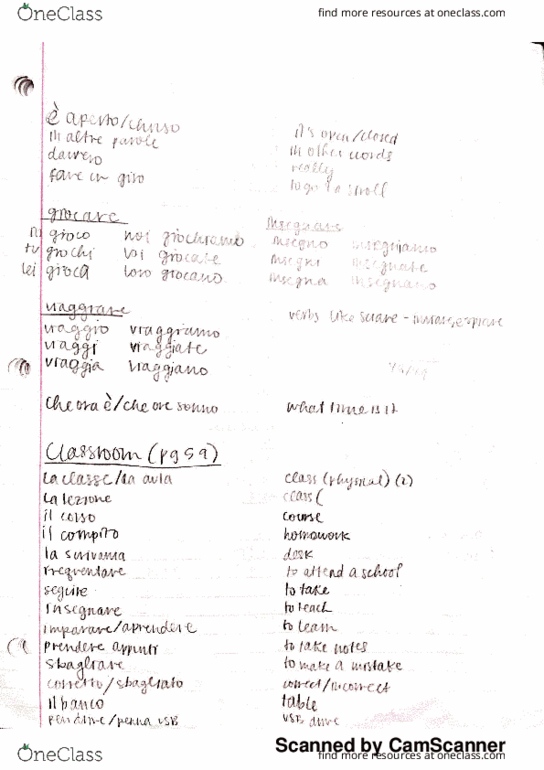 OneClass find more resources at oneclass.com
è aperto/chiuso it's open/closed
in altre parole in other words
davvero really
fare un giro to go to stroll
giocare Insegnare
gioco noi giochiamo insegno insegniamo
tu giochi voi giocate insegni insegnate
lei gioca loro giocano insegna insegnano
viaggiare
viaggio viaggiamo verbs like sciare -
viaggi viaggiate
viaggia viaggiano
Che ora è/che ore sonno what time is it
Classroom (pg 59)
La classe/la aula class (physical) (2)
La lezione class (
il corso course
il compito homework
la scrivania desk
frequentare to attend a school
seguire to take
Insegnare to teach
imparare/aprendere to learn
prendere appunti to take notes
sbagliare to make a mistake
corretto/sbagliato correct/incorrect
il banco table
pen drive/penna USB USB drive
Scanned by CamScanner
OneClass find more resources at oneclass.com